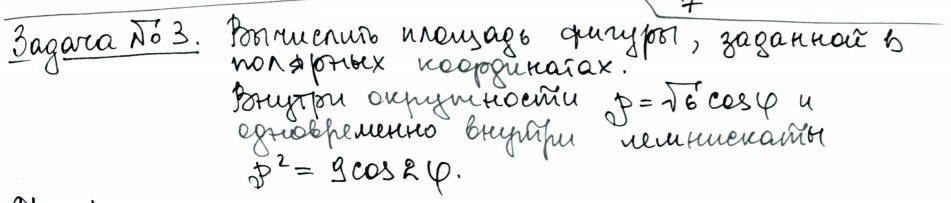 Задача № 3. Вычислить площадь фигуры, заданной в
полярных координатах.
Внутри окружности ρ = √6 cos φ и
одновременно внутри лемнискаты
ρ² = 9 cos 2φ.